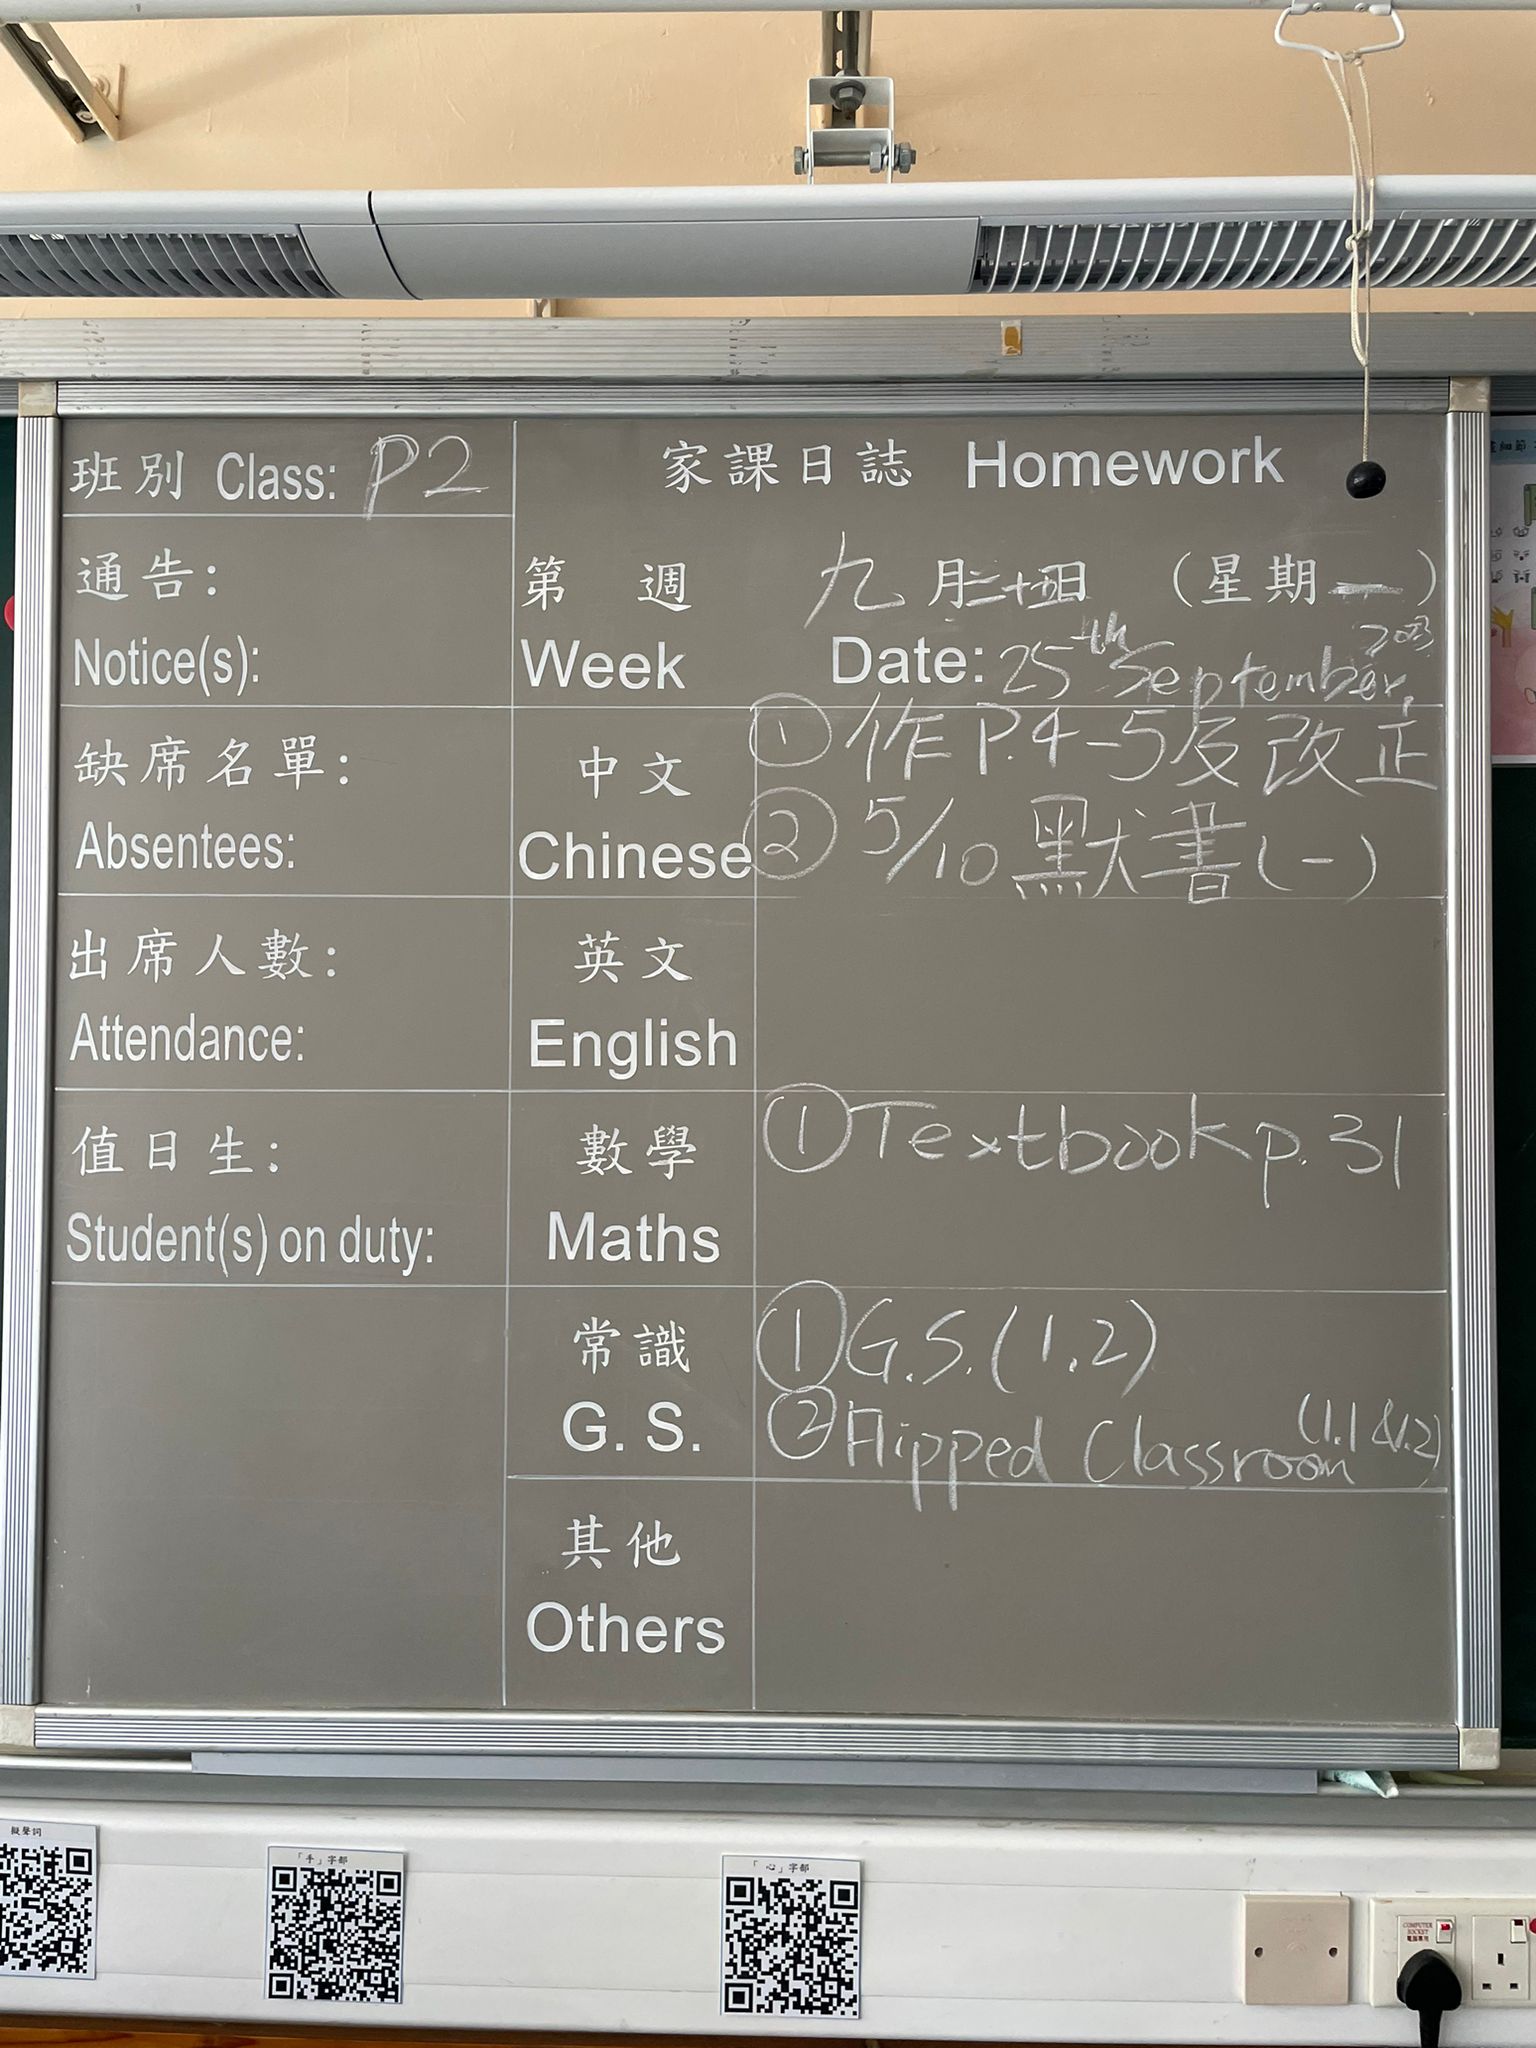 班別 Class: P2
家課日誌 Homework
通告:
Notice(s):
第 週 九月二十五日 (星期一)
Week Date: 25th September, 2023
缺席名單:
Absentees:
中文
Chinese
① 作P.4-5及改正
② 5/10 默書(一)
出席人數:
Attendance:
英文
English
值日生:
Student(s) on duty:
數學
Maths
① Textbook p.31
常識
G. S.
① G.S.(1.2)
② Flipped Classroom (1.1 & 1.2)
其他
Others
擬聲詞
「手」字部
「心」字部
COMPUTER
SOCKET
電腦專用